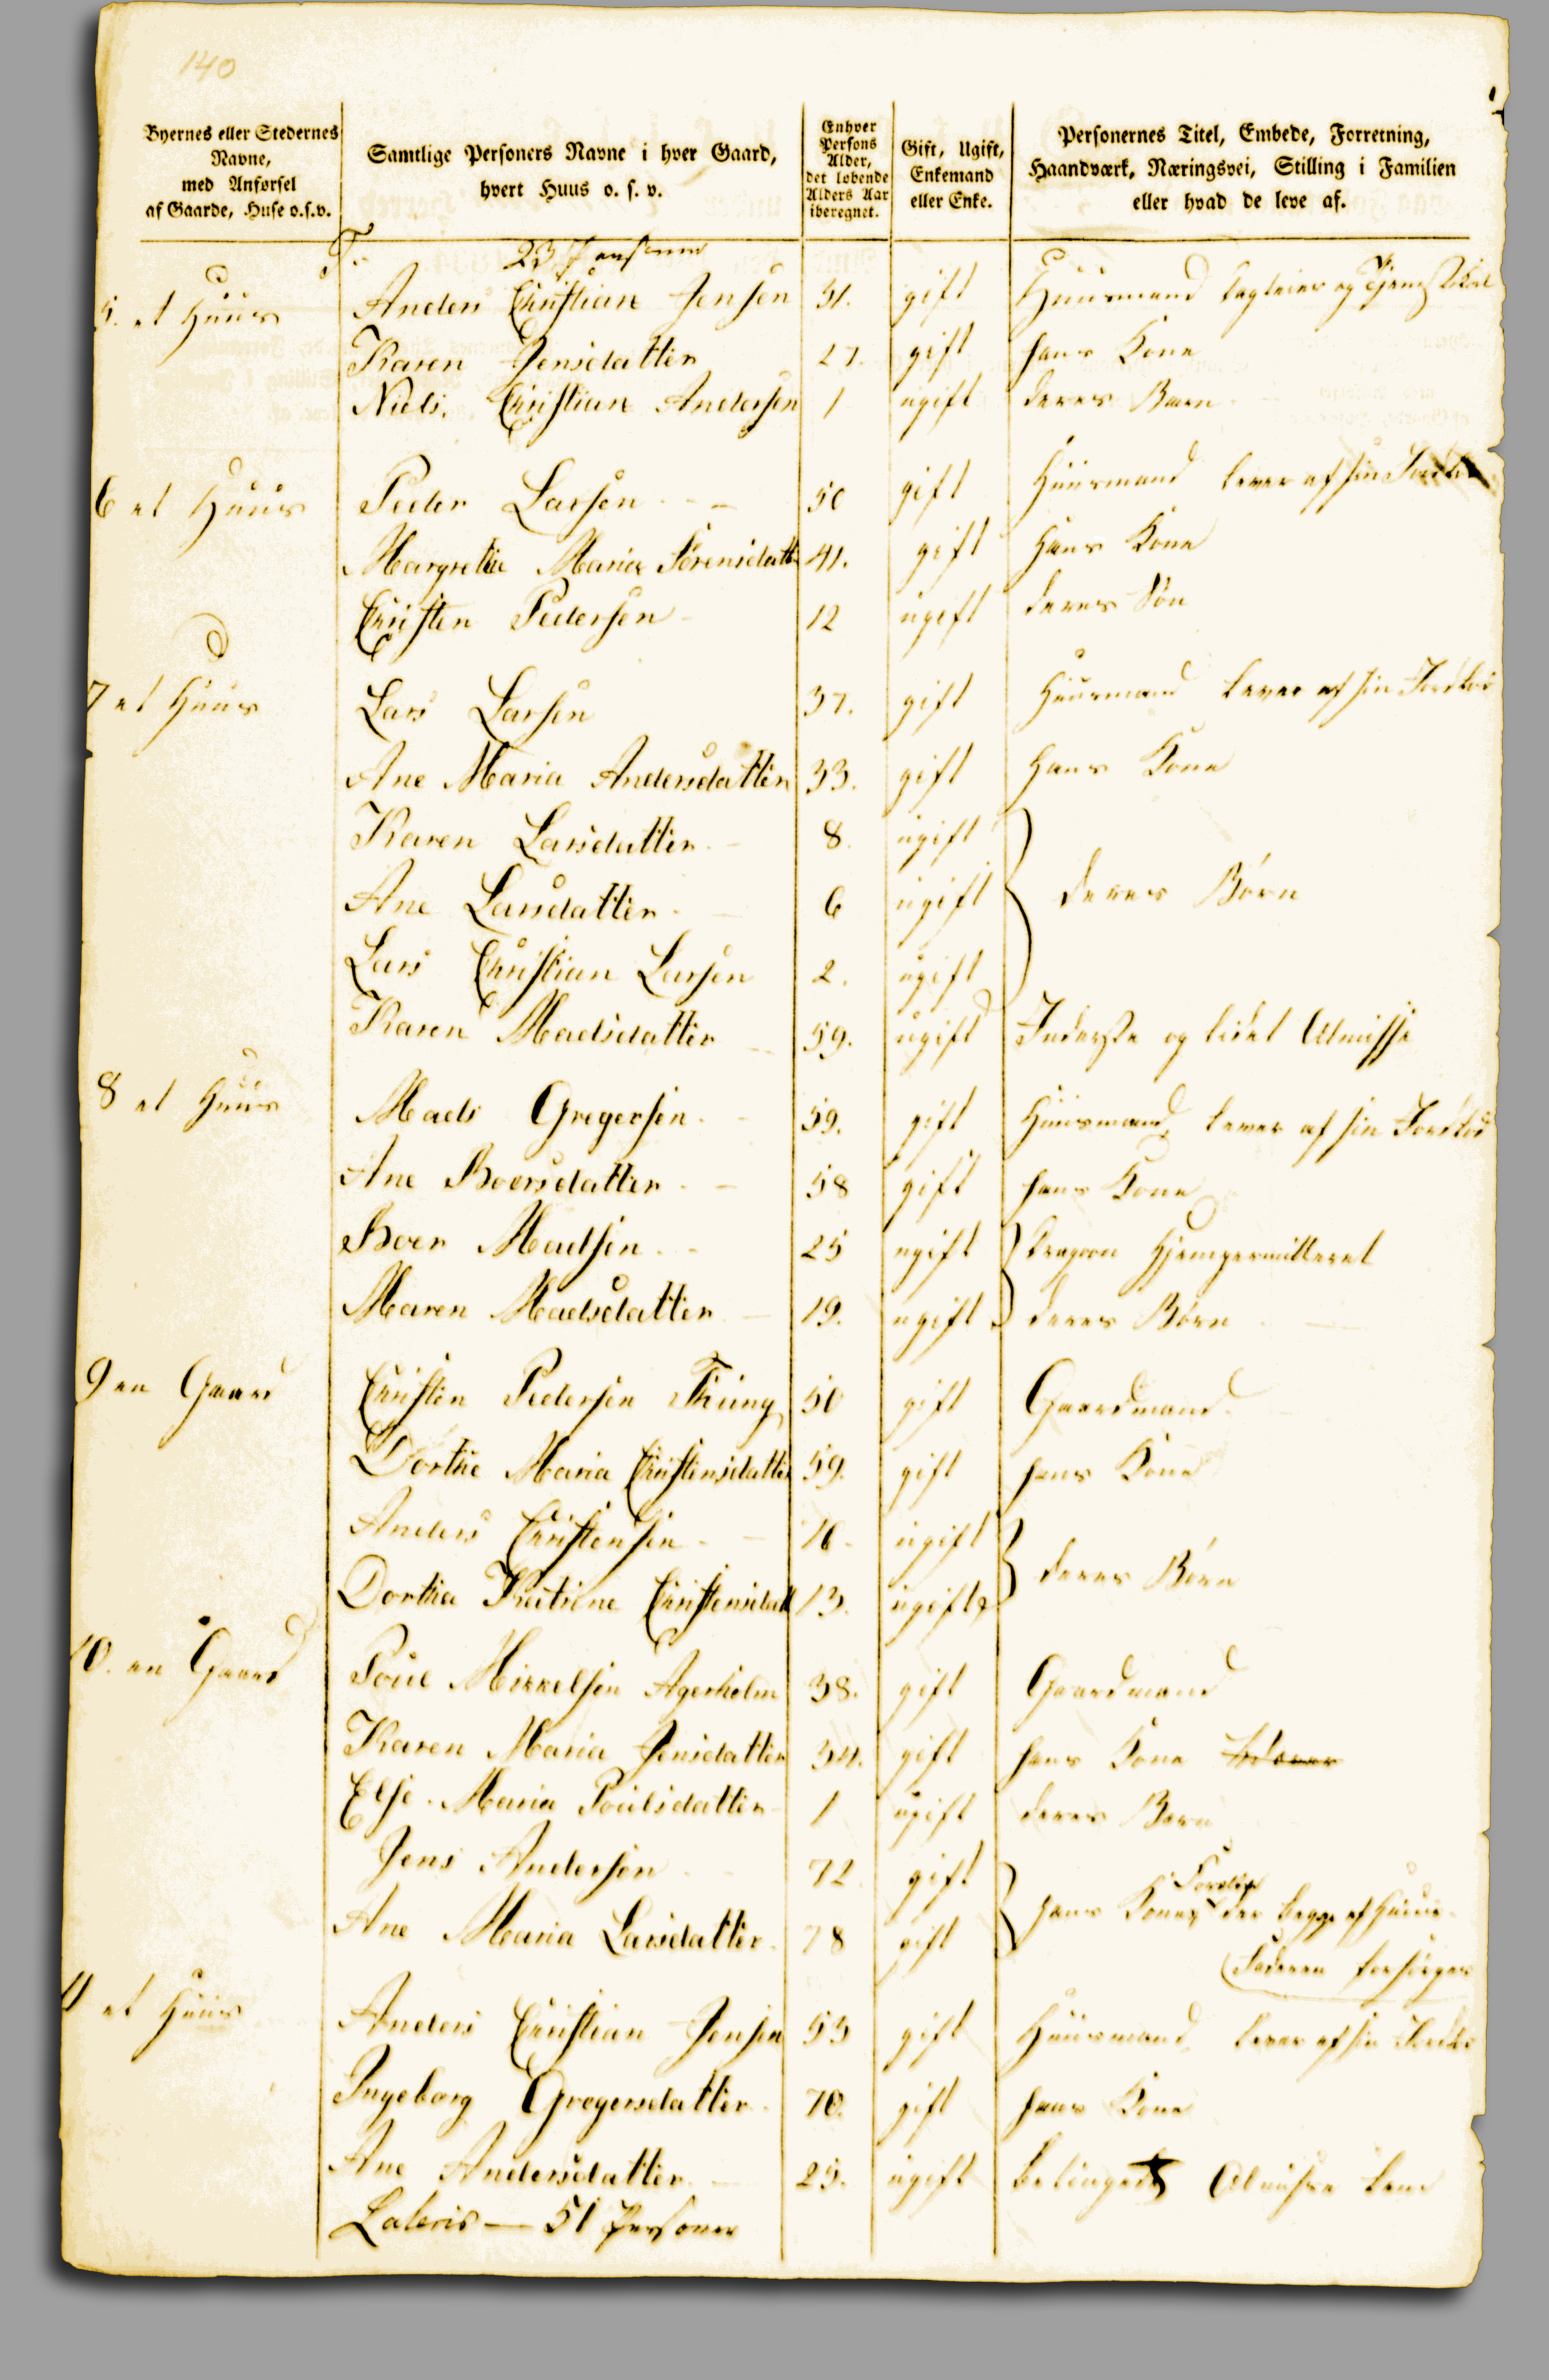 140
Byernes eller Stedernes
Navne,
med Anførsel
af Gaarde, Huse o.s.v.
Samtlige Personers Navne i hver Gaard,
hvert Huus o. s. v.
Enhver
Persons
Alder,
det løbende
Alders Aar
iberegnet.
Gift, Ugift,
Enkemand
eller Enke.
Personernes Titel, Embede, Forretning,
Haandværk, Næringsvei, Stilling i Familien
eller hvad de leve af.
T. 23 Personer
5. et Huus Anders Christian Jensen 31. gift Huusmand og
Karen Jensdatter 27. gift hans Kone
Niels Christian Andersen 1 ugift deres Barn
6 et Huus Peder Larsen 50 gift Huusmand lever af sin Jordlod
Margrethe Maria Sørensdatter 41. gift Hans Kone
Christen Pedersen 12 ugift deres Søn
7 et Huus Lars Larsen 37. gift Huusmand lever af sin Jordlod
Ane Maria Andersdatter 33. gift Hans Kone
Karen Larsdatter 8. ugift
Ane Larsdatter 6 ugift deres Børn
Lars Christian Larsen 2. ugift
Karen Madsdatter 59. ugift Inderste og lidet Almisse
8 et Huus Mads Gregersen 59. gift Huusmand, lever af sin Jordlod
Ane Boersdatter 58 gift hans Kone
Boer Madsen 25 ugift Dragon Hjempermitteret
Maren Madsdatter 19. ugift deres Børn
9 en Gaard Christen Pedersen Thung 50 gift Gaardmand
Dorthe Maria Christensdatter 59. gift hans Kone
Anders Christensen 16. ugift
Dorthea Katrine Christensdatt 13. ugift deres Børn
10. en Gaard Poul Mikkelsen Agerholm 38. gift Gaardmand
Karen Maria Jensdatter 34. gift hans Kone
Else Maria Poulsdatter 1 ugift deres Barn
Jens Andersen 72 gift
Ane Maria Larsdatter 78 gift hans Kone der begge af Huus-
Faderen forsørges
11 et Huus Anders Christian Jensen 53 gift Huusmand lever af sin Jordlod
Ingeborg Gregersdatter 70. gift hans Kone
Ane Andersdatter 25. ugift Almisse Lem
Lateris — 51 Personer